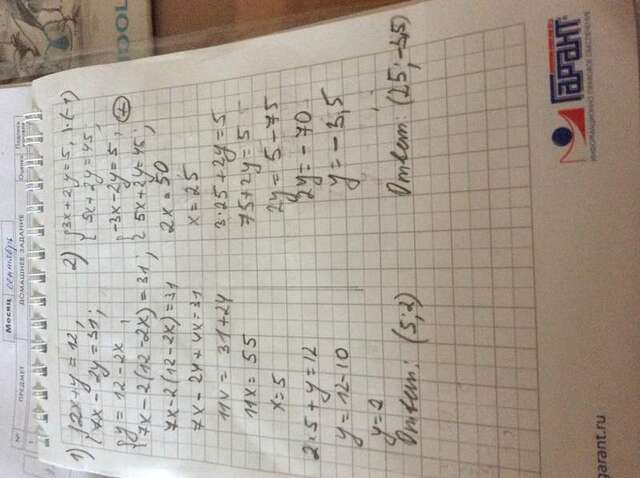 Месяц сентябрь
№
ПРЕДМЕТ
ДОМАШНЕЕ ЗАДАНИЕ
Оценка
Подпись
1) {2x+y=12,
7x-2y=31;
{y=12-2x,
7x-2(12-2x)=31;
7x-2(12-2x)=31
7x-24+4x=31
11x=31+24
11x=55
x=5
2·5+y=12
y=12-10
y=2
Ответ: (5;2)
2) {3x+2y=5, |·(-1)
5x+2y=45;
{-3x-2y=5, (+)
5x+2y=45;
2x=50
x=25
3·25+2y=5
75+2y=5
2y=5-75
2y=-70
y=-3,5
Ответ: (25;-3,5)
ГАРАНТ
ИНФОРМАЦИОННО-ПРАВОВОЕ ОБЕСПЕЧЕНИЕ
garant.ru